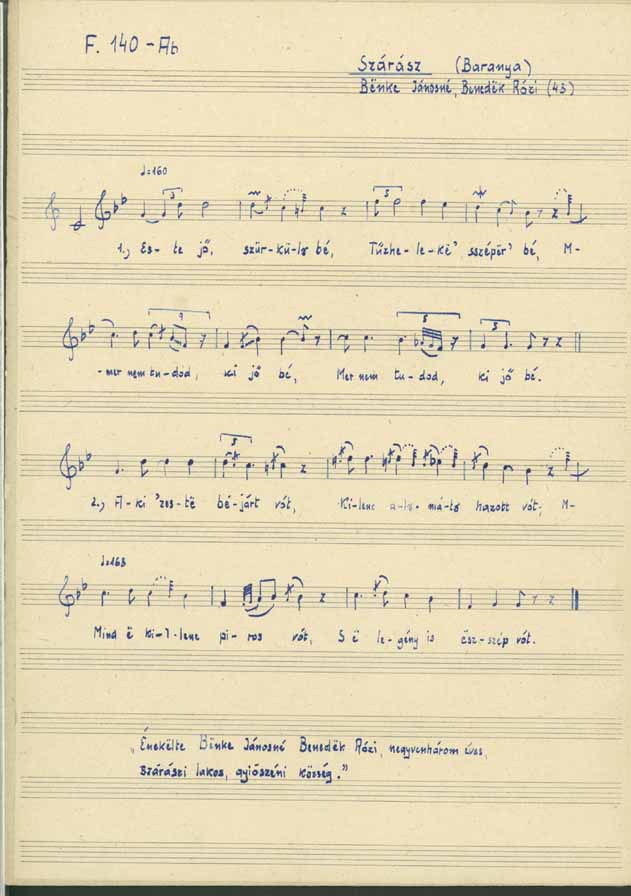 F. 140 - Ab
Szárász (Baranya)
Bënke Jánosné, Benedëk Rózi (43)
♩=160
3 5
1., Es- te jő, szür-kü-lő bé, Tűzhe-le-kë' sszépër' bé, M-
5 5
-mer nem tu-dod, ki jő bé, Mer nem tu-dod, ki jő bé.
5
2., A-ki 'zes-të bé-járt vót, Ki-lenc a-ls- má-ls hazott vót; M-
♩=168
Mind ë ki-l-lenc pi-ros vót, S ë le-gény is ësz-szép vót.
„Énekëlte Bënke Jánosné Benedëk Rózi, negyvenhárom éves,
szárászi lakos, gyiószéni község."